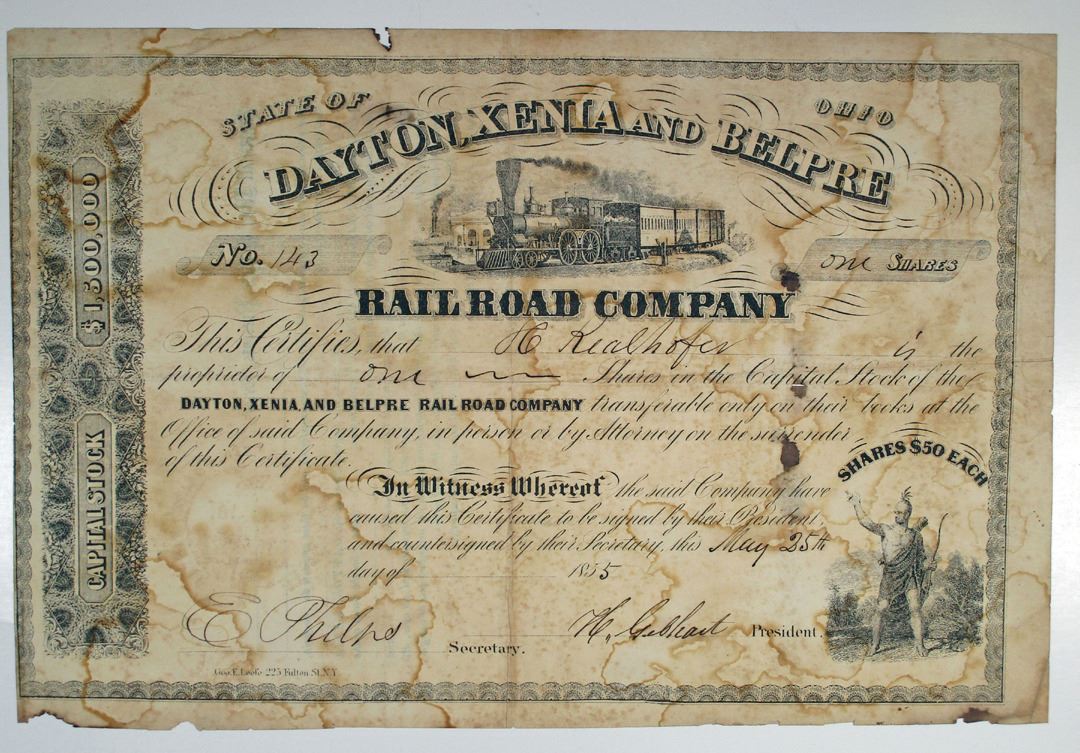 STATE OF OHIO
DAYTON, XENIA AND BELPRE
No. 143
one SHARES
RAIL ROAD COMPANY
This Certifies, that H Realhofer is the
proprietor of one Shares in the Capital Stock of the
DAYTON, XENIA, AND BELPRE RAIL ROAD COMPANY transferable only on their books at the
Office of said Company, in person or by Attorney on the surrender
of this Certificate.
In Witness Whereof the said Company have
caused this Certificate to be signed by their President,
and countersigned by their Secretary, this May 25th
day of 1855
E Phelps Secretary.
H. Gebhart President.
$1,300,000
CAPITAL STOCK
SHARES $50 EACH
Geo. E. 225 Fulton St. N.Y